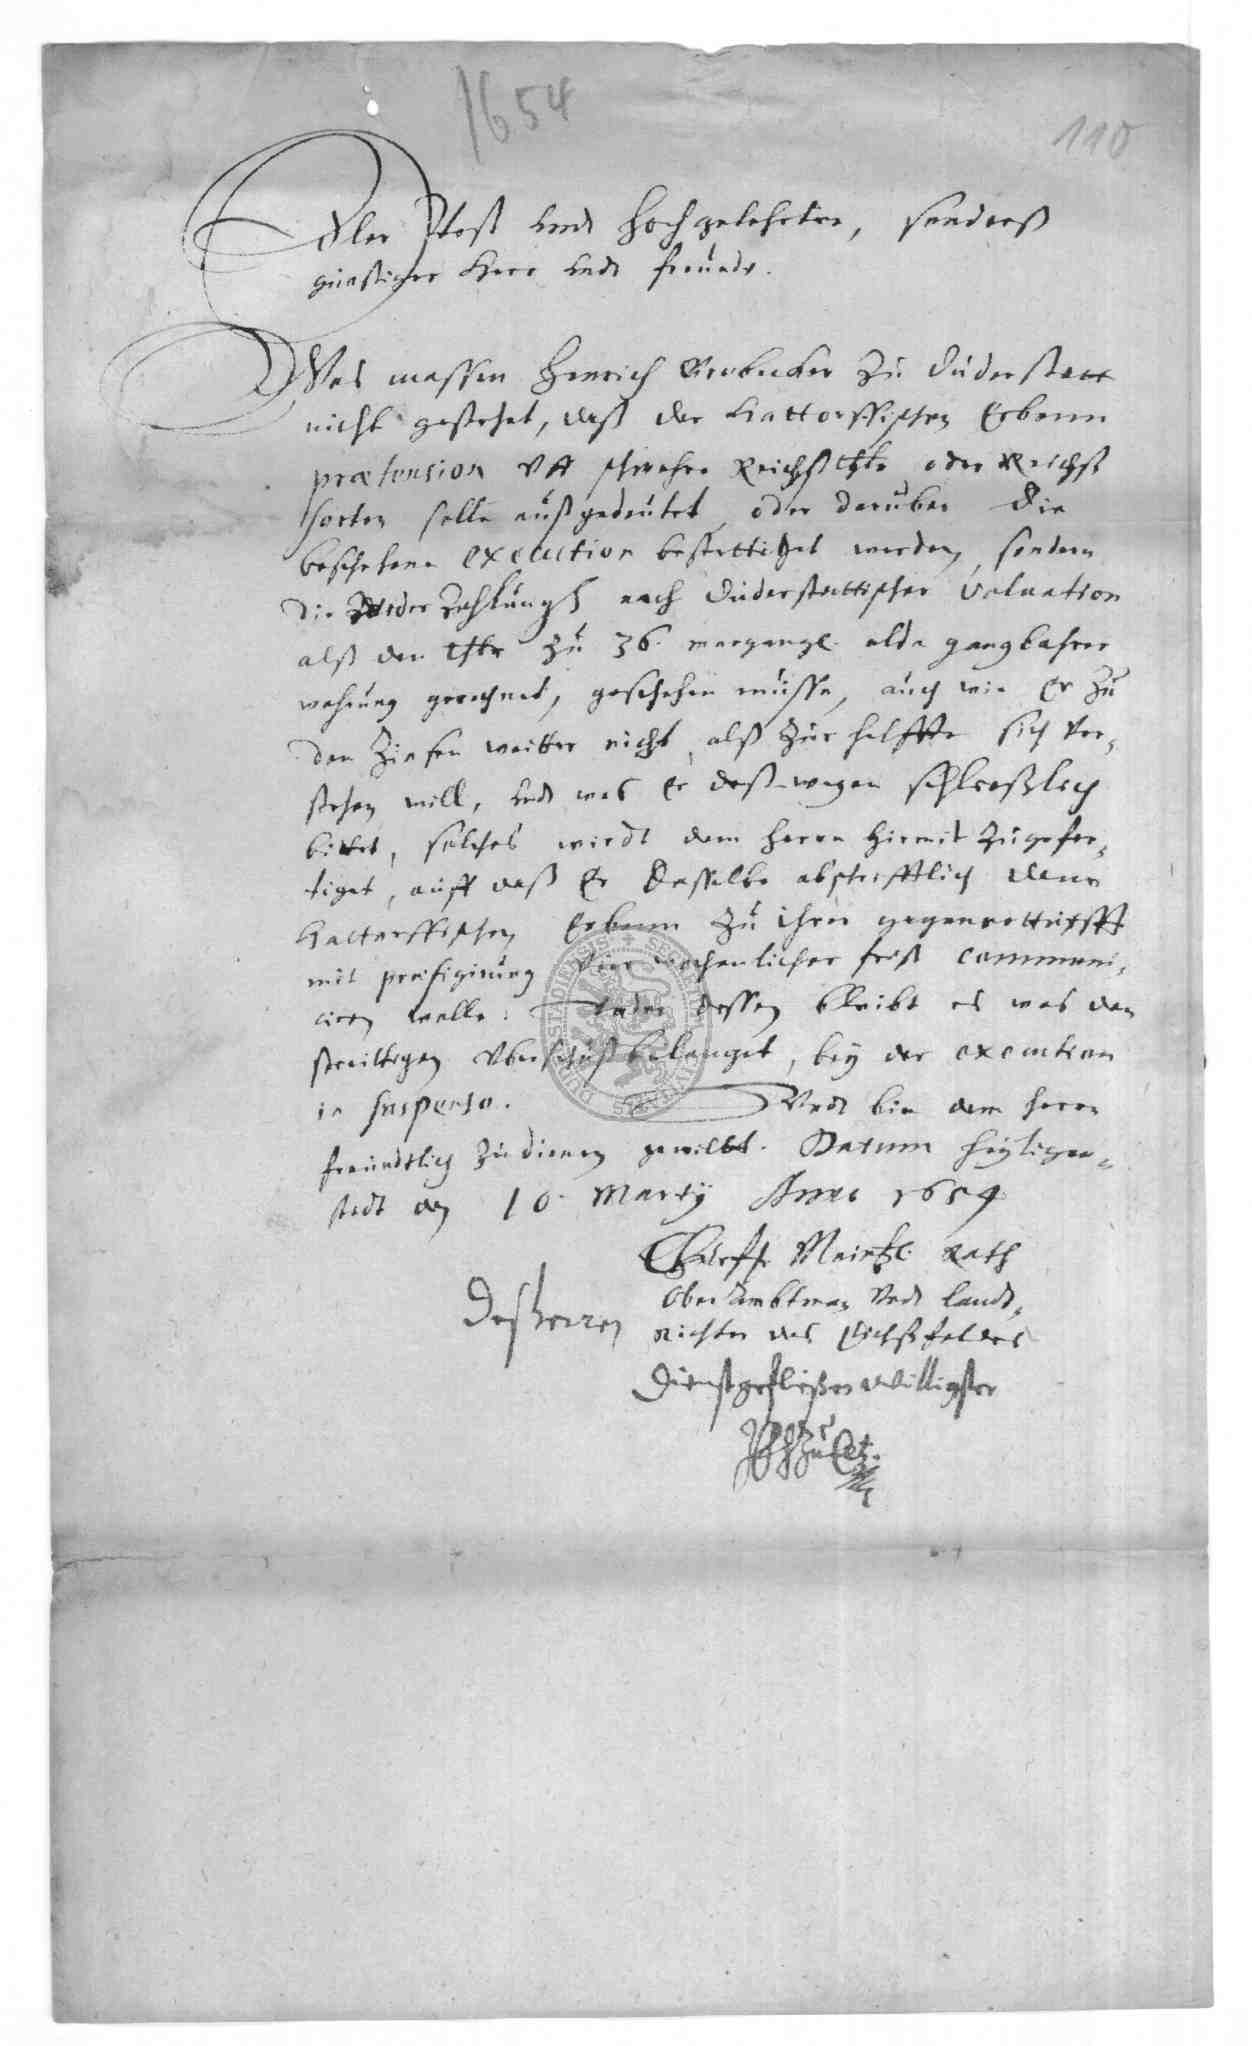 1654
110
Edler Vest undt Hochgelehrter, sonders
günstiger Herr undt freundt.
Was massen Henrich Grobecker zu Duderstatt
nicht gestehet, daß der Hattorffischen Erbenn
prætension uff schwehre Reichsthlr oder Reichs
sorten solle außgedeutet, oder darüber die
beschehene execution bestettiget werden, sondern
die Widerzahlung nach Duderstattischer valuation
alß den thlr zu 36. mariengl. alda gangbahrer
wehrung gerechnet, geschehen müsse, auch wie Er zu
den Zinsen weitter nicht, alß zur helffte sich ver-
stehen will, undt was Er deßwegen schließlich
bittet, solches wirdt dem Herrn hiermit zugefer-
tiget, auff daß Er dasselbe abschrifftlich denn
Hattorffischen Erbenn zu ihrer gegennotturfft
mit præfigirung vier wochentlicher frist communi-
ciren wolle. Under dessen bleibt es was den
streittigen Uberschuß belanget, bey der execution
in suspenso. Undt bin dem Herrn
freundtlich zu dienen gewillt. Datum Heyligen-
stadt den 10. Martij Anno 1654
Churf. Maintzl. Rath
Ober Ambtman undt Landt-
richter des Eichsfeldes
Desherren
Dienstgeflißen Williger
SIGILLUM CIVITATIS DUDERSTADIENSIS